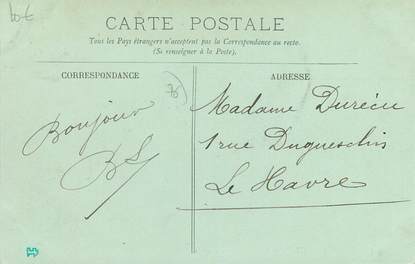 10 €
CARTE POSTALE
Tous les Pays étrangers n'acceptent pas la Correspondance au recto.
(Se renseigner à la Poste).
CORRESPONDANCE
76
ADRESSE
Bonjour
BL
Madame Durécu
1 rue Duguesclin
Le Havre